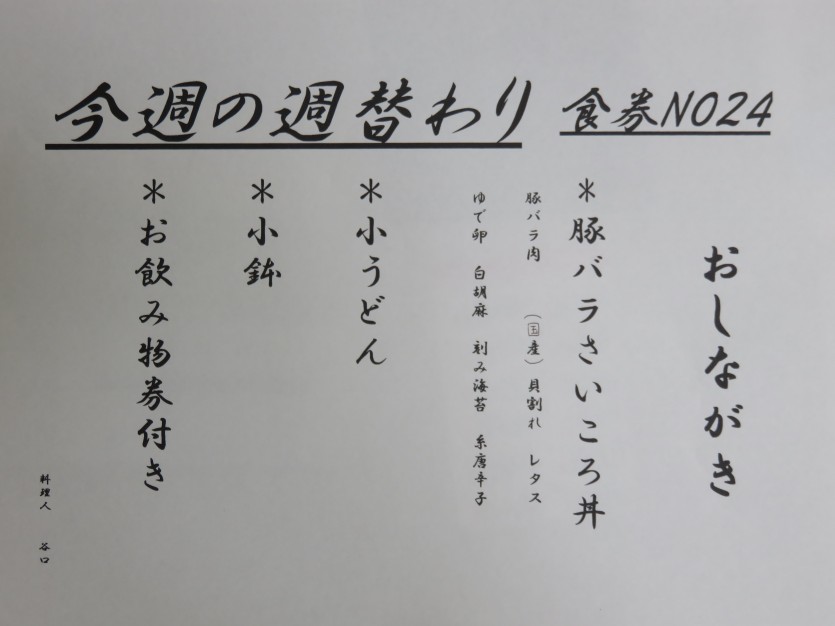 今週の週替わり 食券NO24
おしながき
＊豚バラさいころ丼
豚バラ肉 （国産）貝割れ レタス
ゆで卵 白胡麻 刻み海苔 糸唐辛子
＊小うどん
＊小鉢
＊お飲み物券付き
料理人 谷口